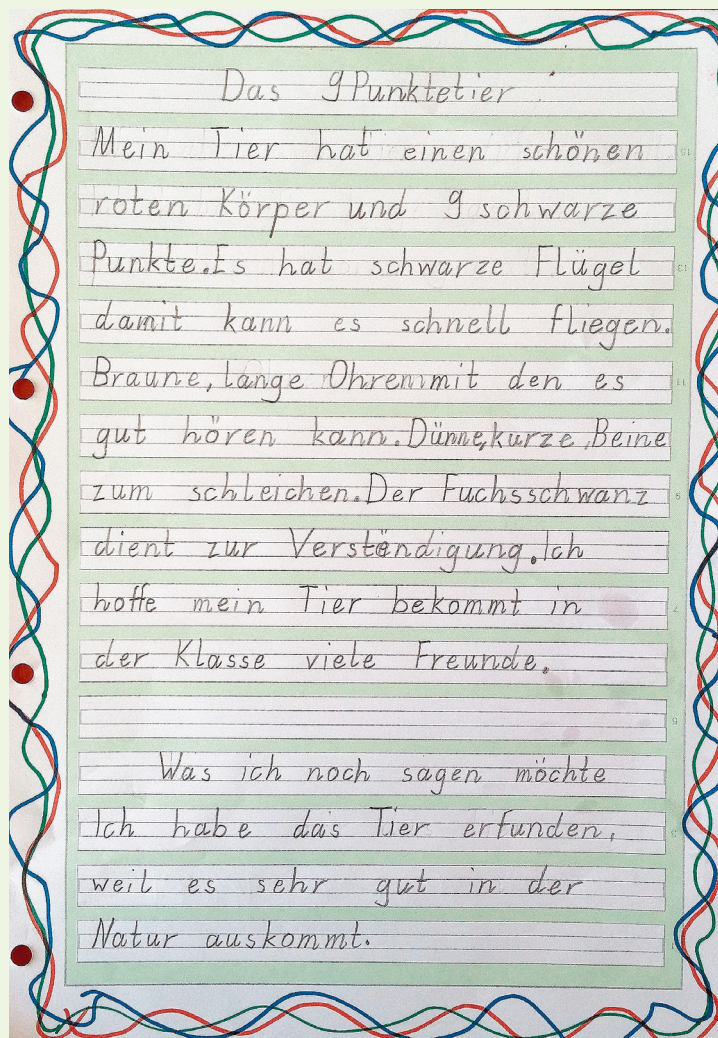 Das 9Punktetier
Mein Tier hat einen schönen
roten Körper und 9 schwarze
Punkte.Es hat schwarze Flügel
damit kann es schnell fliegen.
Braune, lange Ohren mit den es
gut hören kann.Dünne,kurze,Beine
zum schleichen.Der Fuchsschwanz
dient zur Verständigung.Ich
hoffe mein Tier bekommt in
der Klasse viele Freunde.
Was ich noch sagen möchte
Ich habe das Tier erfunden,
weil es sehr gut in der
Natur auskommt.